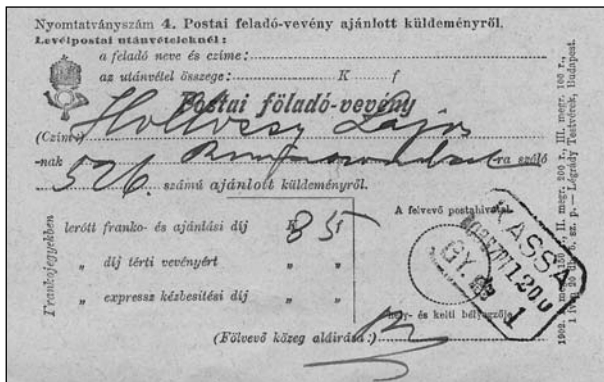 Nyomtatványszám 4. Postai feladó-vevény ajánlott küldeményről.
Levélpostai utánvételeknél:
a feladó neve és czíme:
az utánvétel összege: K f
Postai föladó-vevény
(Czím:) Hollóssy Lajos
-nak -ra szóló
526. számú ajánlott küldeményről.
Frankojegyekben
lerótt franko- és ajánlási díj K 85 f
„ díj térti vevényért „ „
„ expressz kézbesitési díj „ „
A felvevő postahivatal
hely- és kelti bélyegzője
KASSA
GY.
1
(Fölvevő közeg aláirása:)
Légrády Testvérek, Budapest.